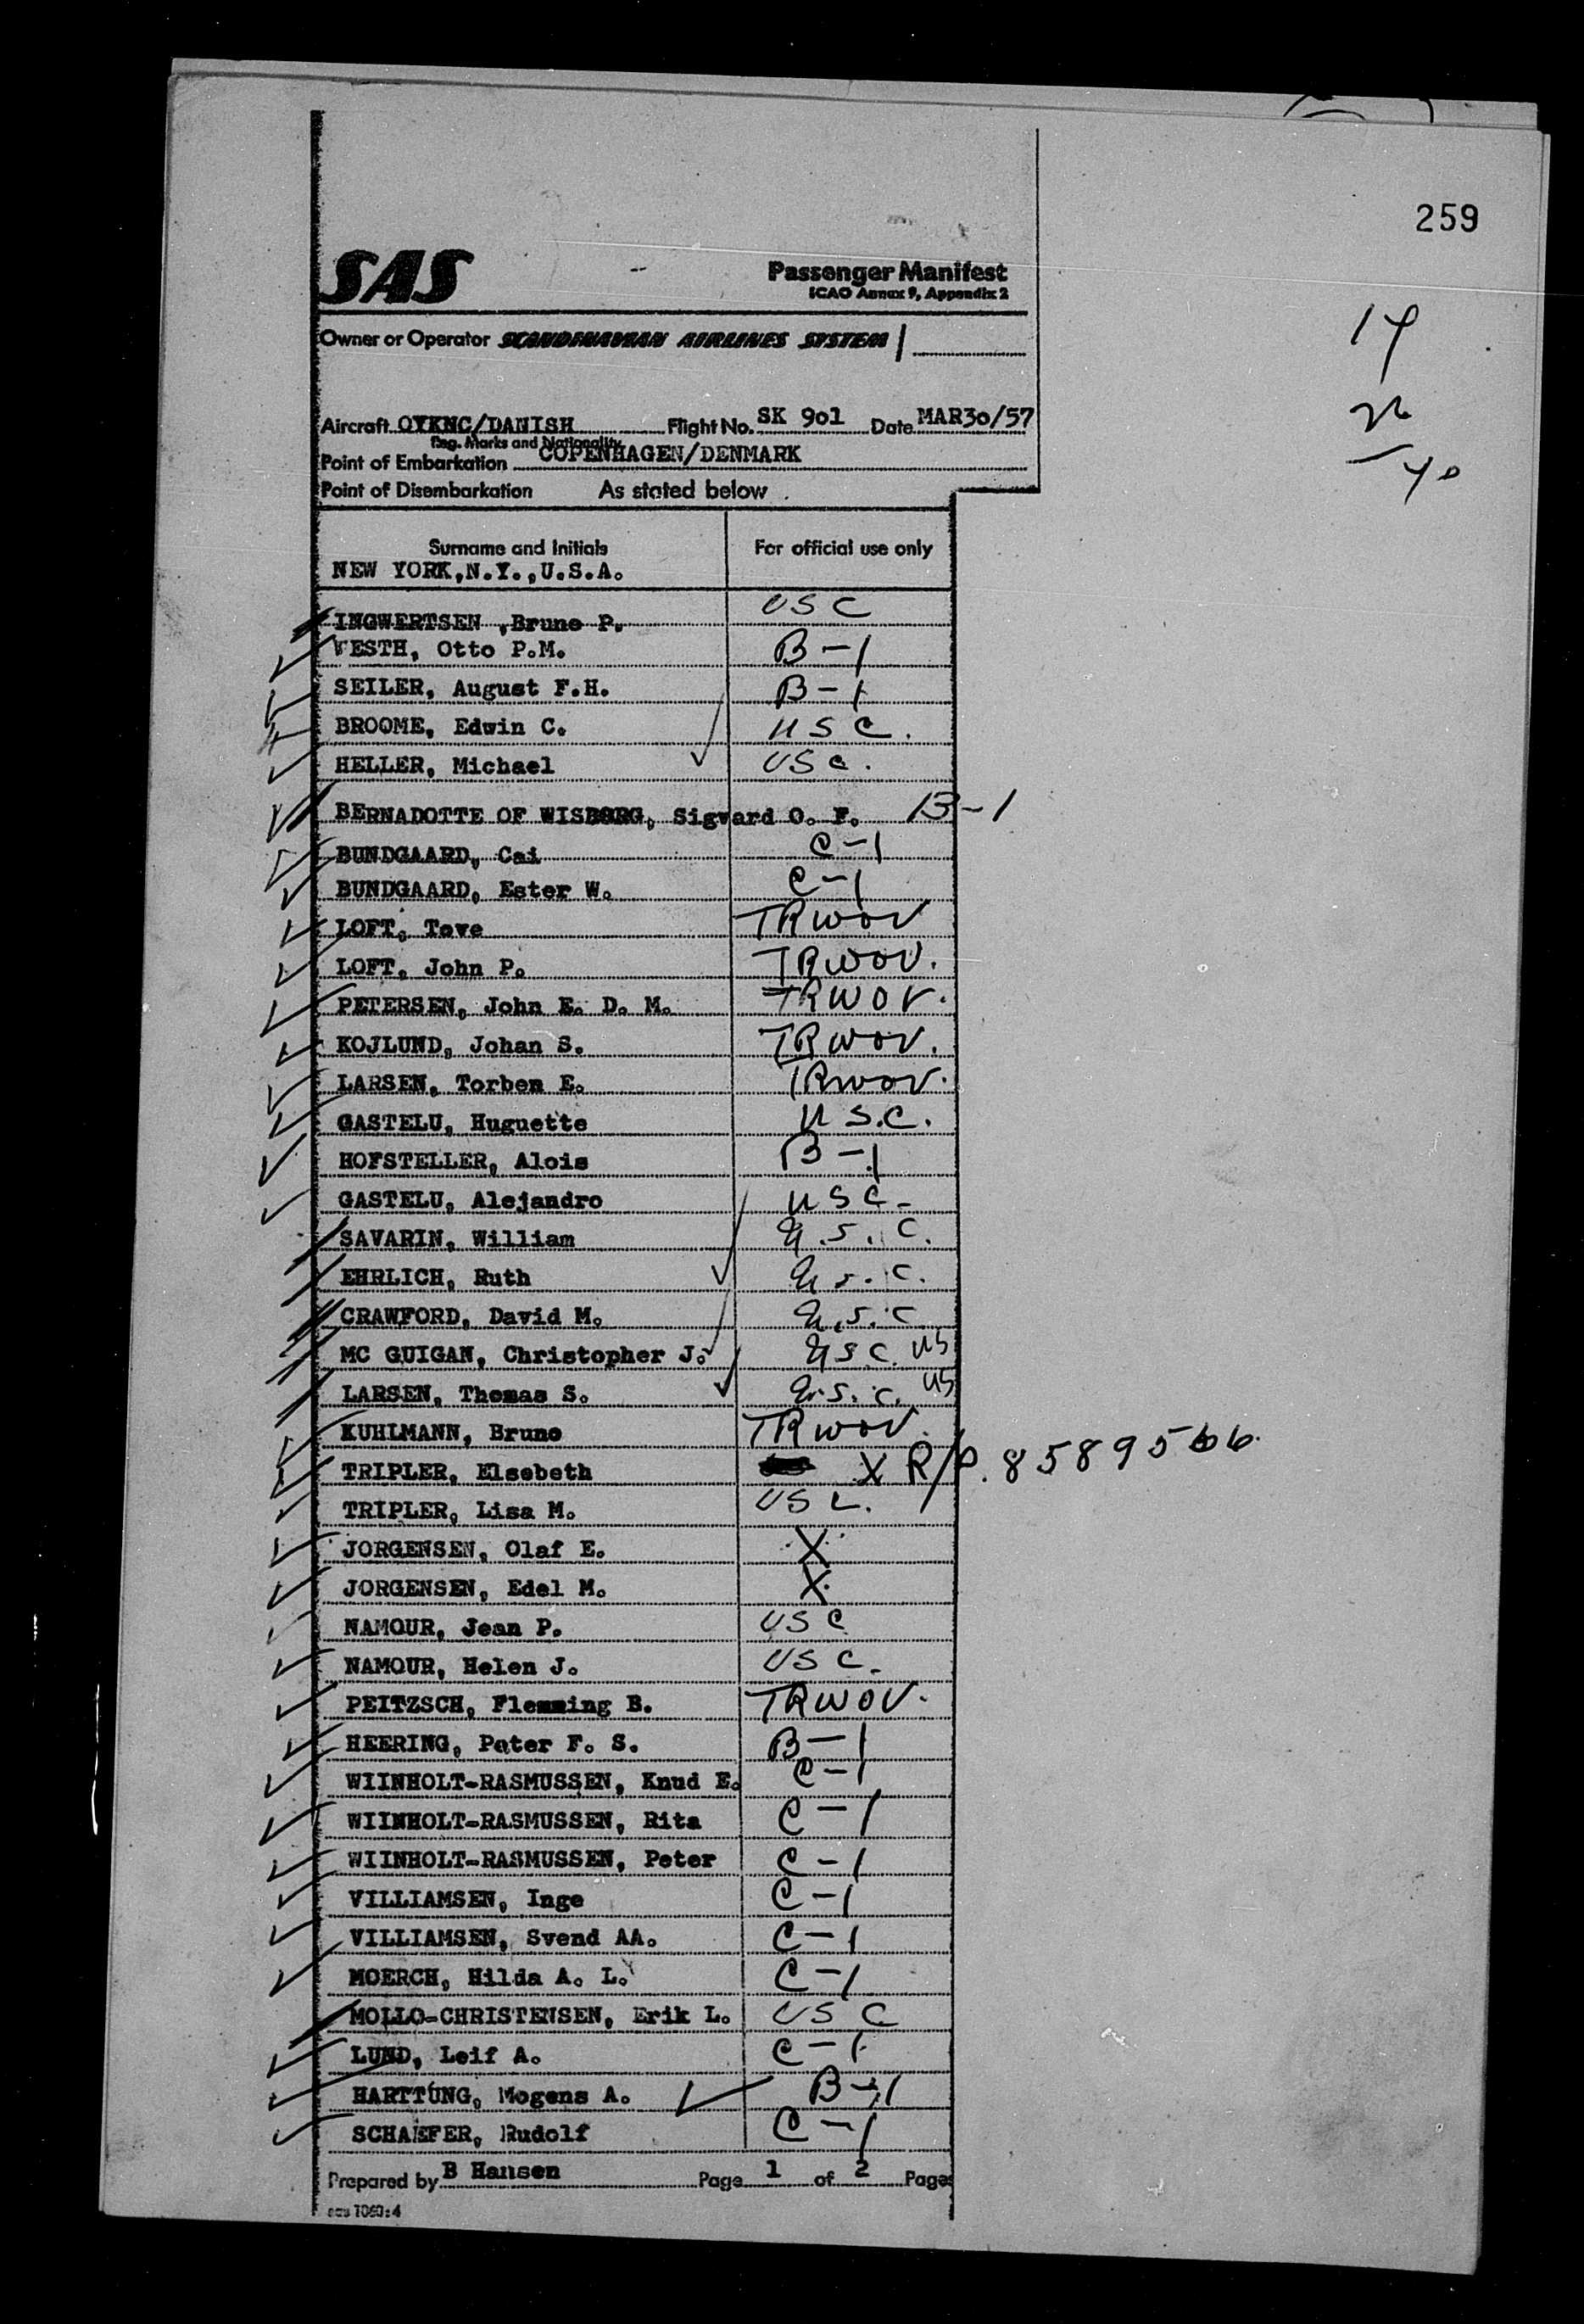 259
SAS
Passenger Manifest
ICAO Annex 9, Appendix 2
Owner or Operator SCANDINAVIAN AIRLINES SYSTEM
14
26
40
Aircraft OYKNC/DANISH Flight No. SK 901 Date MAR30/57
Reg. Marks and Nationality
Point of Embarkation COPENHAGEN/DENMARK
Point of Disembarkation As stated below .
Surname and Initials For official use only
NEW YORK,N.Y.,U.S.A.
INGWERTSEN ,Bruno P. USC
VESTH, Otto P.M. B-1
SEILER, August F.H. B-1
BROOME, Edwin C. USC.
HELLER, Michael USC.
BERNADOTTE OF WISBORG, Sigvard O. F. B-1
BUNDGAARD, Cai C-1
BUNDGAARD, Ester W. C-1
LOFT, Tove TRWOV
LOFT, John P. TRWOV.
PETERSEN, John E. D. M. TRWOV.
KOJLUND, Johan S. TRWOV.
LARSEN, Torben E. TRWOV.
GASTELU, Huguette U.S.C.
HOFSTELLER, Alois B-1
GASTELU, Alejandro USC-
SAVARIN, William U.S.C.
EHRLICH, Ruth U.S.C.
CRAWFORD, David M. U.S.C
MC GUIGAN, Christopher J. USC. US
LARSEN, Thomas S. U.S.C. US
KUHLMANN, Bruno TRWOV.
TRIPLER, Elsebeth X R/P. 8589566.
TRIPLER, Lisa M. USC.
JORGENSEN, Olaf E. X
JORGENSEN, Edel M. X
NAMOUR, Jean P. USC
NAMOUR, Helen J. USC.
PEITZSCH, Flemming B. TRWOV.
HEERING, Peter F. S. B-1
WIINHOLT-RASMUSSEN, Knud E. C-1
WIINHOLT-RASMUSSEN, Rita C-1
WIINHOLT-RASMUSSEN, Peter C-1
VILLIAMSEN, Inge C-1
VILLIAMSEN, Svend AA. C-1
MOERCH, Hilda A. L. C-1
MOLLO-CHRISTENSEN, Erik L. USC
LUND, Leif A. C-1
HARTTUNG, Mogens A. B-1
SCHAEFER, Rudolf C-1
Prepared by B Hansen Page 1 of 2 Pages
sas 1060:4